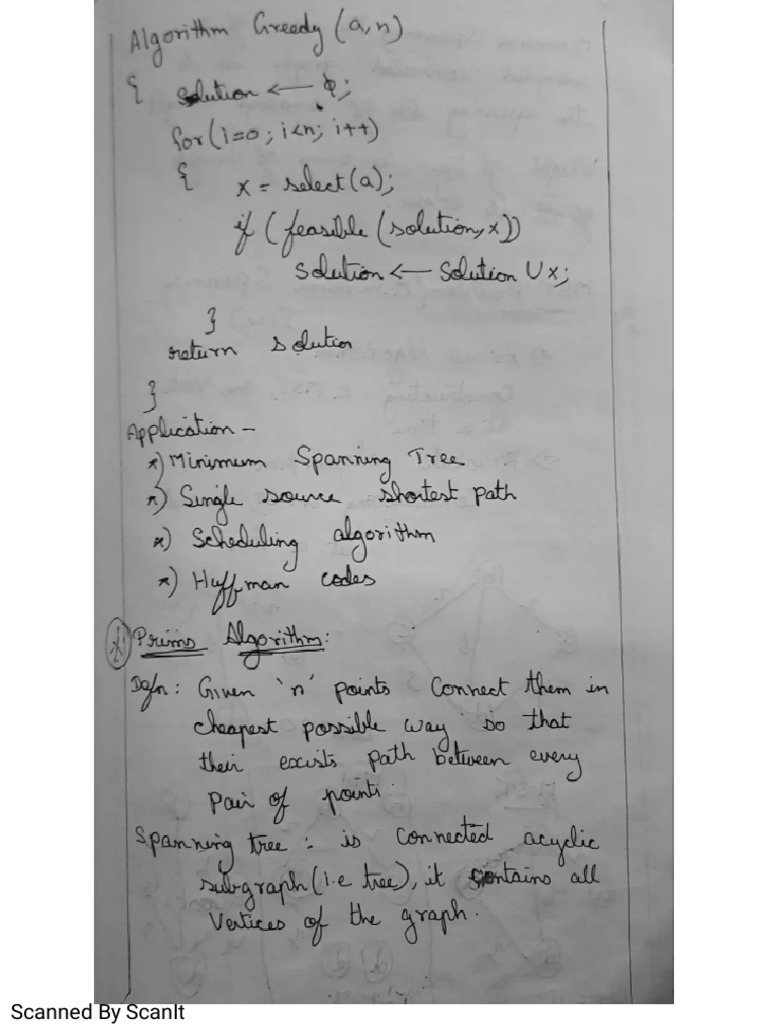 Algorithm Greedy (a,n)
{ solution ← ϕ;
for(i=0; i<n; i++)
{ x = select(a);
if (feasible (solution,x))
solution ← solution ∪ x;
}
return solution
}
Application –
*) Minimum Spanning Tree
*) Single source shortest path
*) Scheduling algorithm
*) Huffman codes
*) Prims Algorithm:
Defn: Given 'n' points connect them in
cheapest possible way so that
their exists path between every
pair of points.
Spanning tree: is connected acyclic
subgraph (i.e tree), it contains all
vertices of the graph.
Scanned By ScanIt